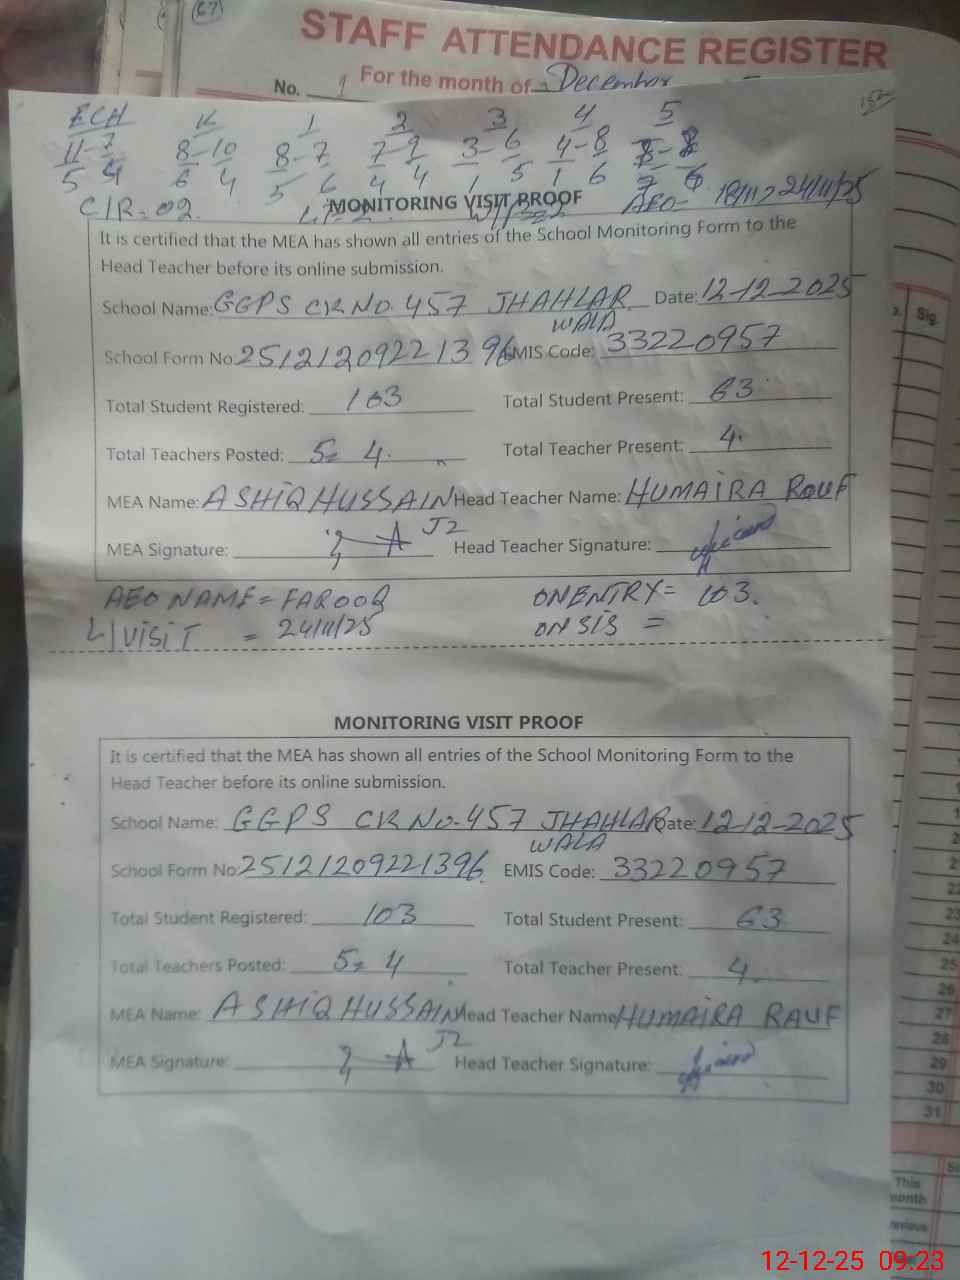 67
STAFF ATTENDANCE REGISTER
No. 1 For the month of December
ECH K 1 2 3 4 5
11-7 8-10 8-7 7-9 3-6 4-8 8-8
5 4 6 4 5 6 4 4 1 5 1 6 7 6
C/R=02. AEO- 18/11, 24/11/25
MONITORING VISIT PROOF
It is certified that the MEA has shown all entries of the School Monitoring Form to the
Head Teacher before its online submission.
School Name: GGPS CK NO. 457 JHAHLAR Date: 12-12-2025
WALA
School Form No: 25121209221396 EMIS Code: 33220957
Total Student Registered: 103 Total Student Present: 63
Total Teachers Posted: 5= 4. Total Teacher Present: 4.
MEA Name: ASHIQ HUSSAIN Head Teacher Name: HUMAIRA ROUF
MEA Signature: J2 Head Teacher Signature:
AEO NAME = FAROOQ ONENTRY = 103.
L/VISIT = 24/11/25 ON SIS =
MONITORING VISIT PROOF
It is certified that the MEA has shown all entries of the School Monitoring Form to the
Head Teacher before its online submission.
School Name: GGPS CK No. 457 JHAHLAR Date: 12-12-2025
WALA
School Form No: 25121209221396 EMIS Code: 33220957
Total Student Registered: 103 Total Student Present: 63
Total Teachers Posted: 5= 4 Total Teacher Present: 4.
MEA Name: ASHIQ HUSSAIN Head Teacher Name HUMAIRA RAUF
MEA Signature: J2 Head Teacher Signature:
Sig.
22
23
24
25
26
27
28
29
30
31
This
month
12-12-25 09:23